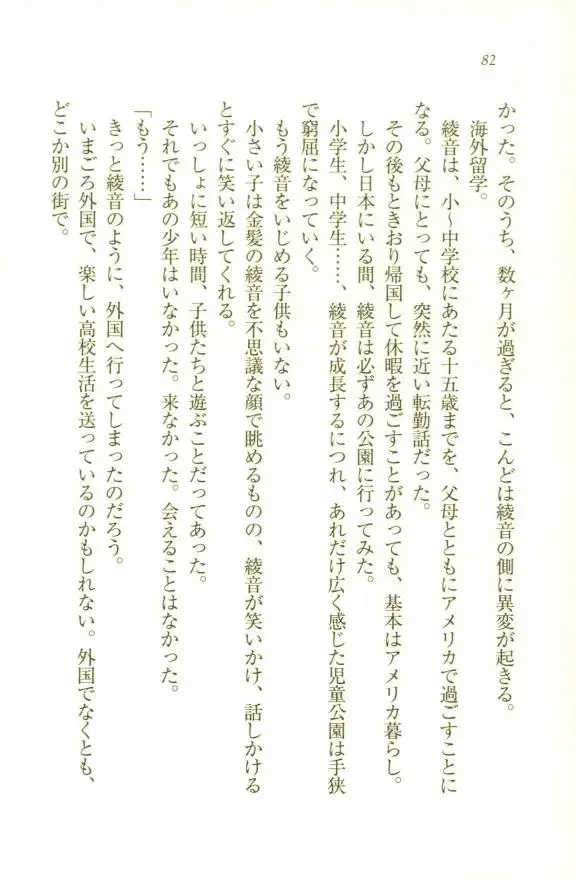 82
かった。そのうち、数ヶ月が過ぎると、こんどは綾音の側に異変が起きる。
海外留学。
綾音は、小〜中学校にあたる十五歳までを、父母とともにアメリカで過ごすことに
なる。父母にとっても、突然に近い転勤話だった。
その後もときおり帰国して休暇を過ごすことがあっても、基本はアメリカ暮らし。
しかし日本にいる間、綾音は必ずあの公園に行ってみた。
小学生、中学生……、綾音が成長するにつれ、あれだけ広く感じた児童公園は手狭
で窮屈になっていく。
もう綾音をいじめる子供もいない。
小さい子は金髪の綾音を不思議な顔で眺めるものの、綾音が笑いかけ、話しかける
とすぐに笑い返してくれる。
いっしょに短い時間、子供たちと遊ぶことだってあった。
それでもあの少年はいなかった。来なかった。会えることはなかった。
「もう……」
きっと綾音のように、外国へ行ってしまったのだろう。
いまごろ外国で、楽しい高校生活を送っているのかもしれない。外国でなくとも、
どこか別の街で。